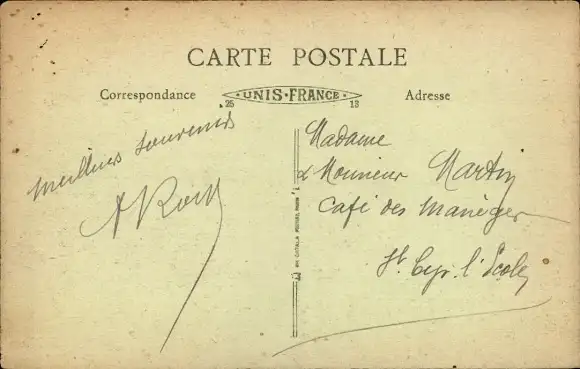 CARTE POSTALE
Correspondance
UNIS-FRANCE
25 13
Adresse
Meilleurs souvenirs
Madame
& Monsieur Martin
Café des Manèges
St Cyr. l'École